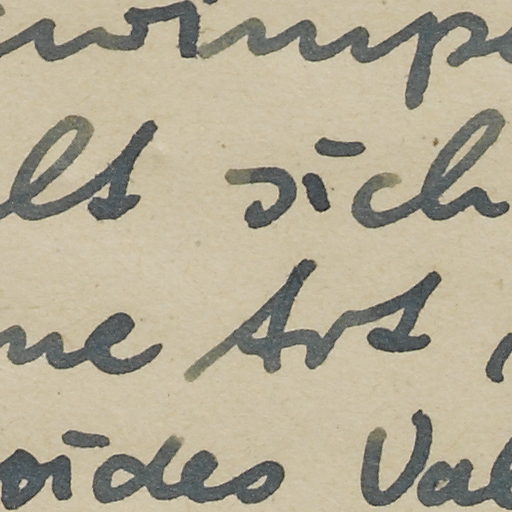 wimp
lt sich
ne Art
oides Val